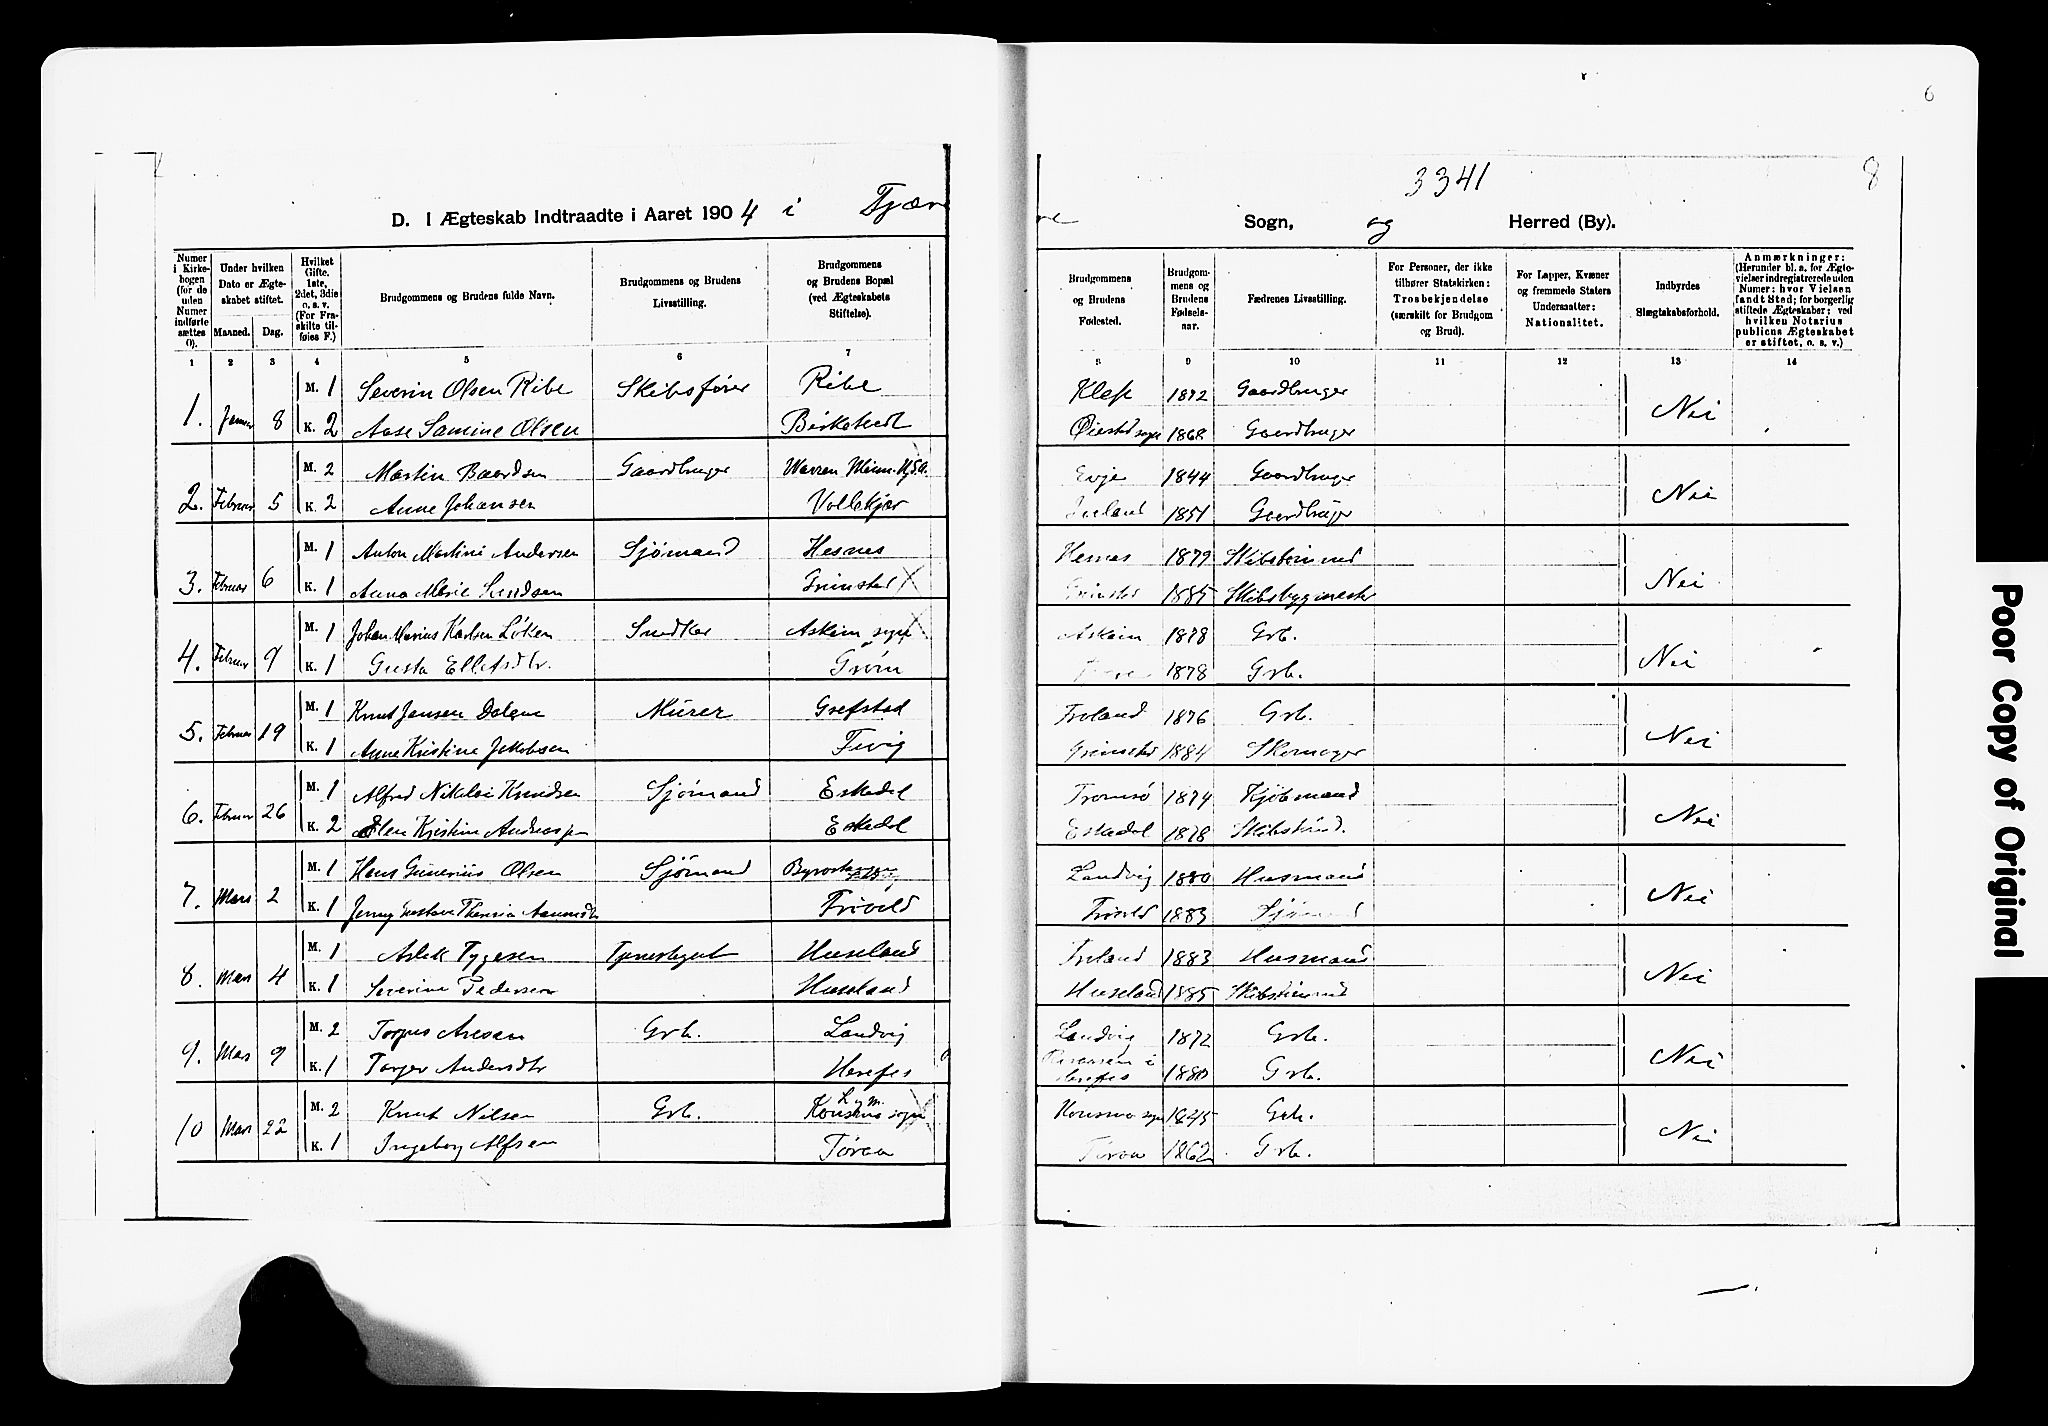 6
3341
8
D. I Ægteskab Indtraadte i Aaret 1904 i Fjære Sogn, og Herred (By).
Numer i Kirkebogen (for de uden Numer indførte sættes 0).
Under hvilken Dato er Ægteskabet stiftet.
Maaned. Dag.
Hvilket Gifte. 1ste, 2det, 3die o. s. v. (For Fraskilte tilføies F.)
Brudgommens og Brudens fulde Navn.
Brudgommens og Brudens Livsstilling.
Brudgommens og Brudens Bopæl (ved Ægteskabets Stiftelse).
Brudgommens og Brudens Fødested.
Brudgommens og Brudens Fødselsaar.
Fædrenes Livsstilling.
For Personer, der ikke tilhører Statskirken: Trosbekjendelse (særskilt for Brudgom og Brud).
For Lapper, Kvæner og fremmede Staters Undersaatter: Nationalitet.
Indbyrdes Slægtskabsforhold.
Anmærkninger: (Herunder bl. a. for Ægtevielser indregistrerede uden Numer: hvor Vielsen fandt Sted; for borgerlig stiftede Ægteskaber: ved hvilken Notarius publicus Ægteskabet er stiftet, o. s. v.)
1 2 3 4 5 6 7 8 9 10 11 12 13 14
1. Januar 8 M. 1 Severin Olsen Ribe Skibsfører Ribe Klep 1872 Gaardbruger Nei
K. 2 Aase Samine Olsen Birketredt Øiestad sogn 1868 Gaardbruger
2. Februar 5 M. 2 Martin Baardsen Gaardbruger Warren Minn. U.S.A. Evje 1844 Gaardbruger Nei
K. 2 Anne Johansen Vollekjær 1851 Gaardbruger
3. Februar 6 M. 1 Anton Martini Andersen Sjømand Hesnes Hesnes 1879 Skibstømmd Nei
K. 1 Anna Marie Grimstad Grimstad 1885 Skibsbyggmester
4. Februar 9 M. 1 Johan Marius Karlsen Løken Snedker Askim sogn Askim 1878 Grb. Nei
K. 1 Gusta Ellefsdtr. Grøm 1878 Grb.
5. Februar 19 M. 1 Knut Jensen Dalene Murer Grefstad Froland 1876 Grb. Nei
K. 1 Anne Kristine Jakobsen Fevig Grimstad 1884 Skomager
6. Februar 26 M. 1 Alfred Nikolai Knudsen Sjømand Eskedal Tromsø 1874 Kjøbmand Nei
K. 2 Elen Kristine Andreasen Eskedal Eskedal 1878
7. Mars 2 M. 1 Hans Gunerius Olsen Sjømand Landvig 1880 Husmand Nei
K. 1 Jenny Gustava Frivold Frivold 1883 Sjømand
8. Mars 4 M. 1 Aslak Tygesen Tjenestegut Huseland Froland 1883 Husmand Nei
K. 1 Severine Pedersen Huseland Huseland 1885 Skibstømmd
9. Mars 9 M. 2 Torjus Aresen Grb. Landvig Landvig 1872 Grb. Nei
K. 1 Torjer Andersdtr Herefos i Herefos 1880 Grb.
10 Mars 22 M. 2 Knut Nilsen Grb. L. og M. Konsmo sogn Konsmo sogn 1845 Grb. Nei
K. 1 Ingeborg Alfsen Tøraa Tøraa 1862 Grb.
Poor Copy of Original